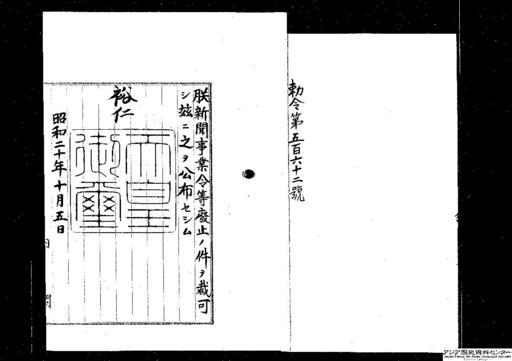 勅令第五百六十二號
朕新聞事業令等廢止ノ件ヲ裁可
シ玆ニ之ヲ公布セシム
裕仁
天皇御璽
昭和二十年十月五日
内閣
アジア歴史資料センター